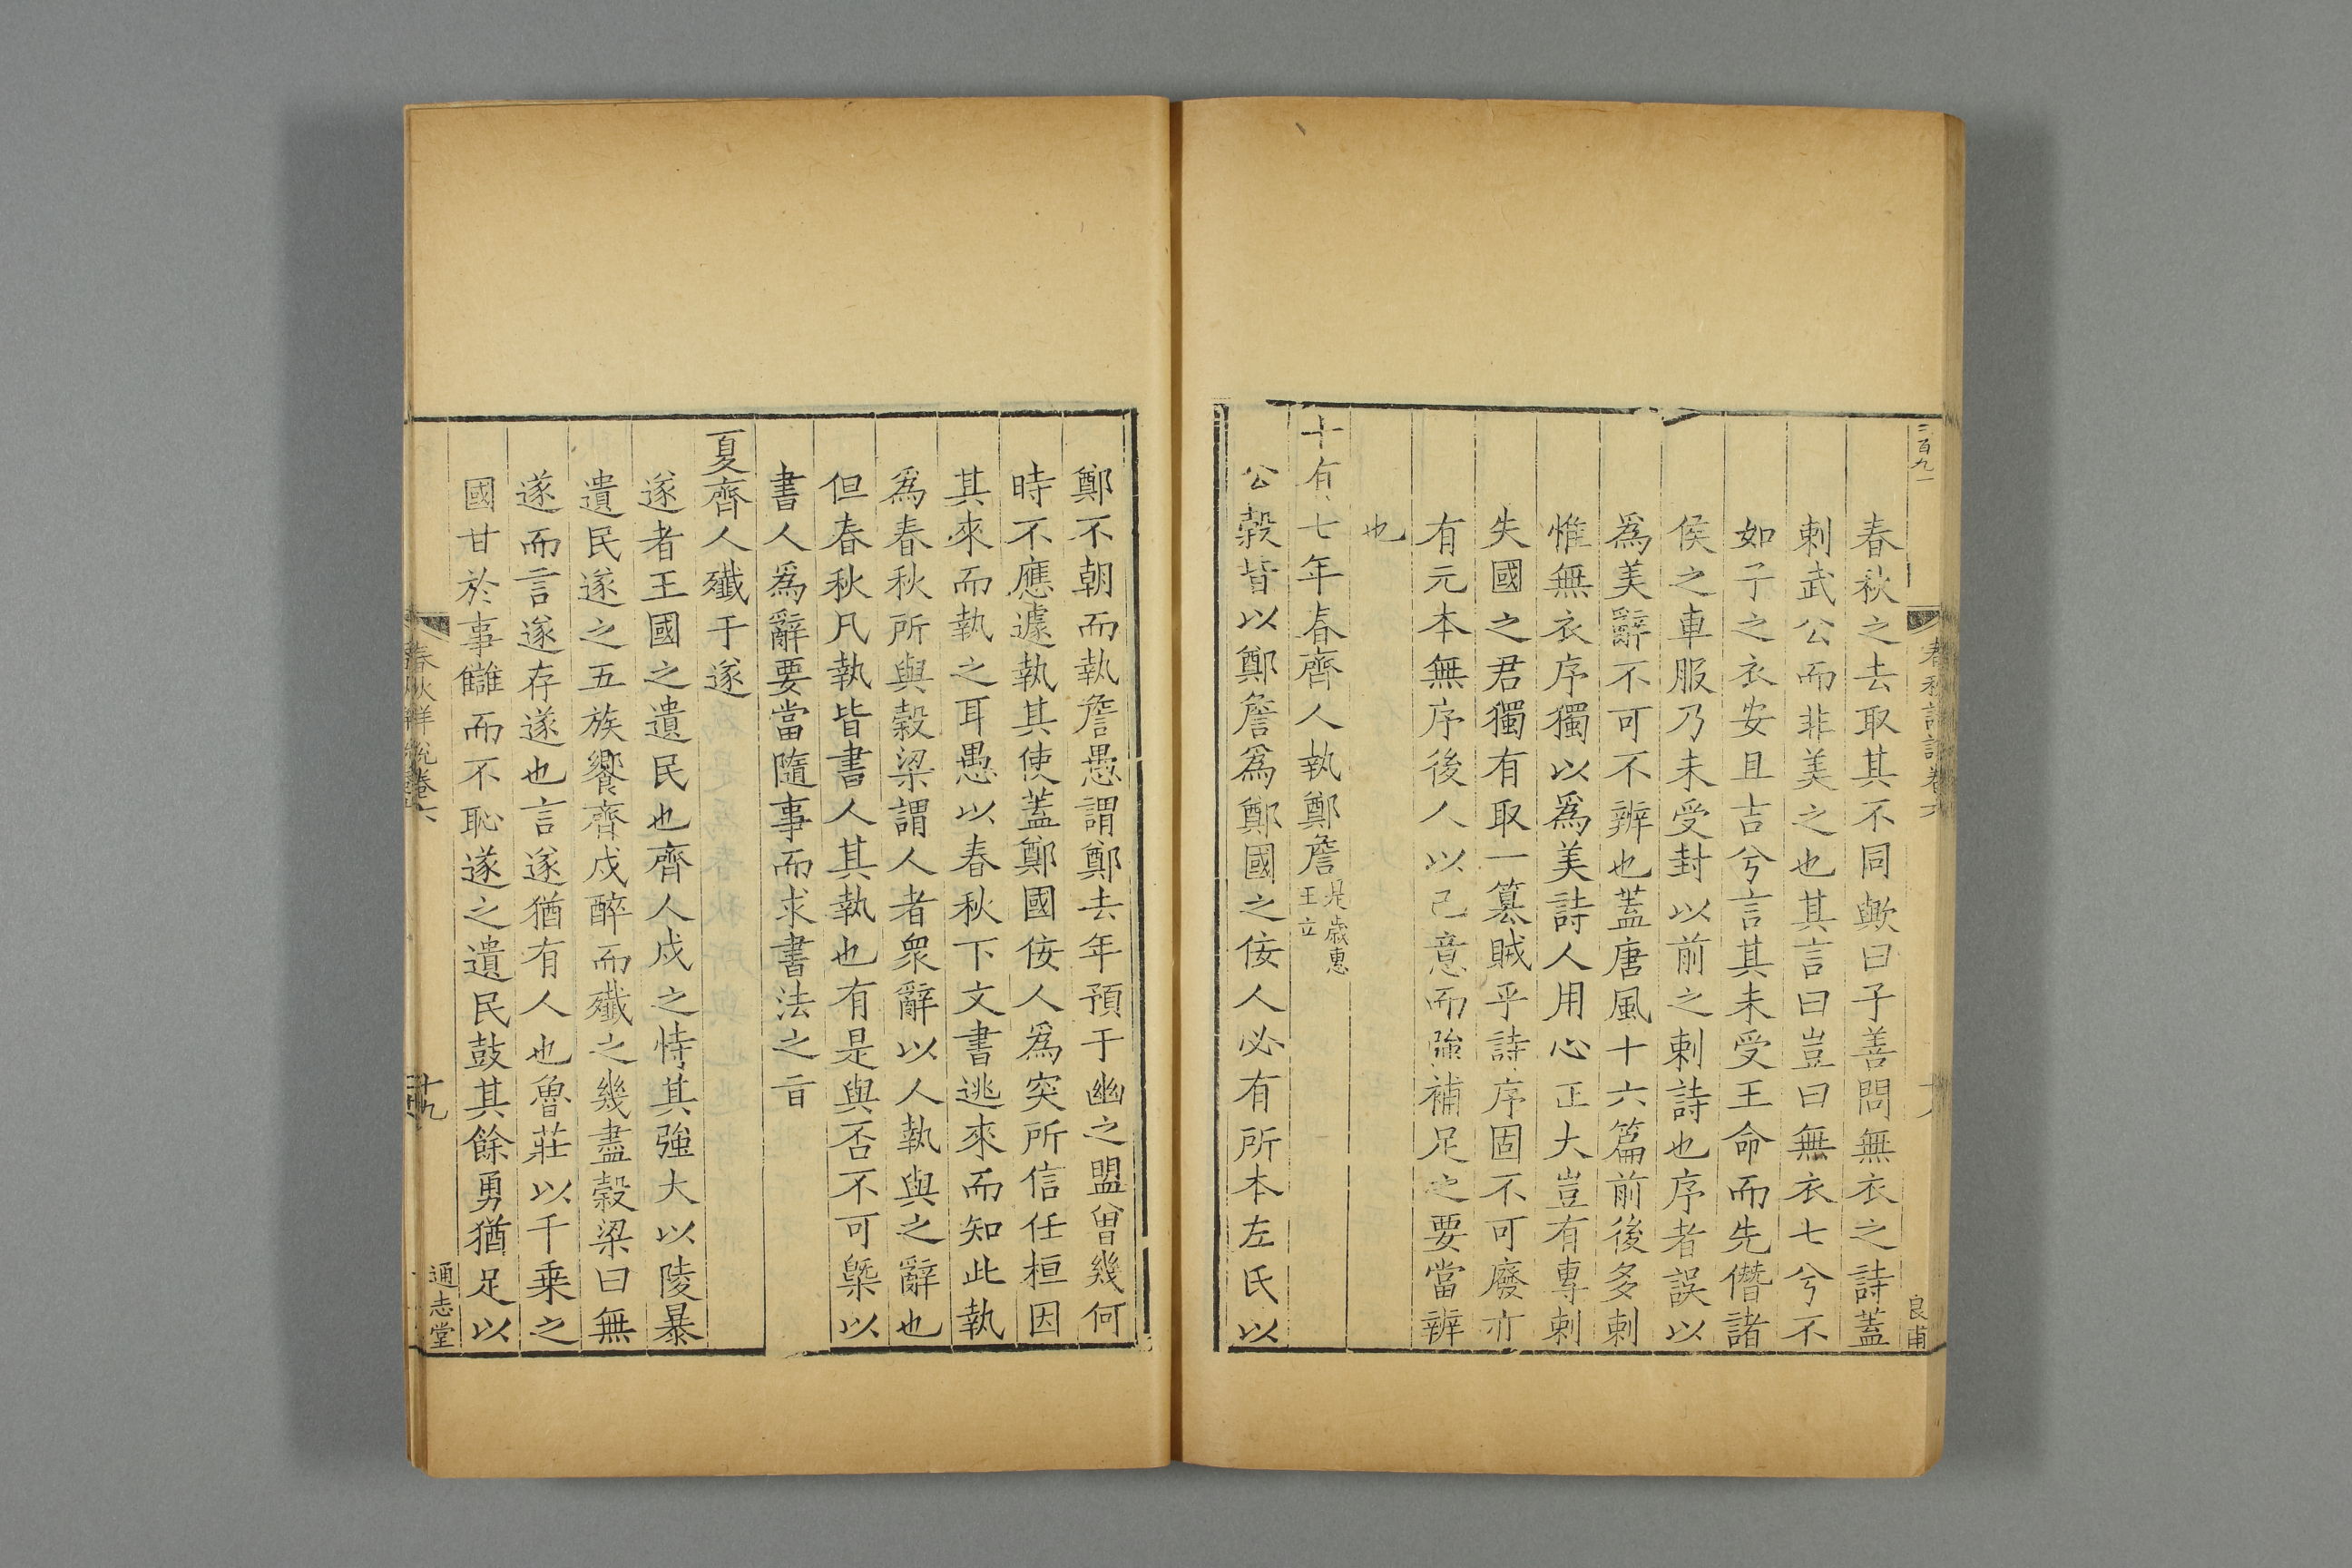 二百九一
春秋詳說卷六
良甫
春秋之去取其不同歟曰子善問無衣之詩蓋
刺武公而非美之也其言曰豈曰無衣七兮不
如子之衣安且吉兮言其未受王命而先僭諸
侯之車服乃未受封以前之刺詩也序者誤以
為美辭不可不辨也蓋唐風十六篇前後多刺
惟無衣序獨以為美詩人用心正大豈有專刺
失國之君獨有取一篡賊乎詩序固不可廢亦
有元本無序後人以己意而強補足之要當辨
也
十有七年春齊人執鄭詹是歲惠王立
公榖皆以鄭詹為鄭國之佞人必有所本左氏以
鄭不朝而執詹愚謂鄭去年預于幽之盟曾幾何
時不應遽執其使蓋鄭國佞人為突所信任桓因
其來而執之耳愚以春秋下文書逃來而知此執
為春秋所與榖梁謂人者衆辭以人執與之辭也
但春秋凡執皆書人其執也有是與否不可槩以
書人為辭要當隨事而求書法之旨
夏齊人殲于遂
遂者王國之遺民也齊人戍之恃其強大以陵暴
遺民遂之五族饗齊戍醉而殲之幾盡榖梁曰無
遂而言遂存遂也言遂猶有人也魯莊以千乗之
國甘於事讎而不恥遂之遺民鼓其餘勇猶足以
春秋詳說卷六
十九
通志堂